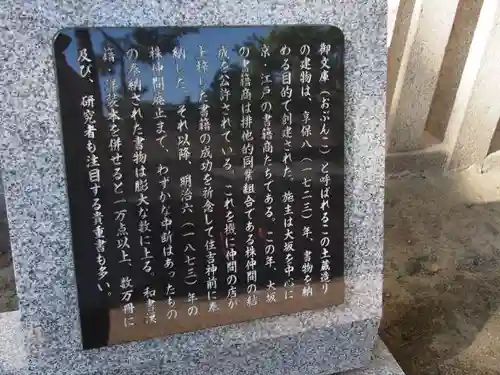 御文庫（おぶんこ）と呼ばれるこの土蔵造り
の建物は、享保八（一七二三）年、書物を納
める目的で創建された。施主は大坂を中心に
京、江戸の書籍商たちである。この年、大坂
の書籍商は排他的同業組合である株仲間の結
成を公許されている。これを機に仲間の店が
上梓した書籍の成功を祈念して住吉神前に奉
納した。それ以降、明治六（一八七三）年の
株仲間廃止まで、わずかな中断はあったもの
の奉納された書物は膨大な数に上る。和書漢
籍・洋装本を併せると一万点以上、数万冊に
及び、研究者も注目する貴重書も多い。